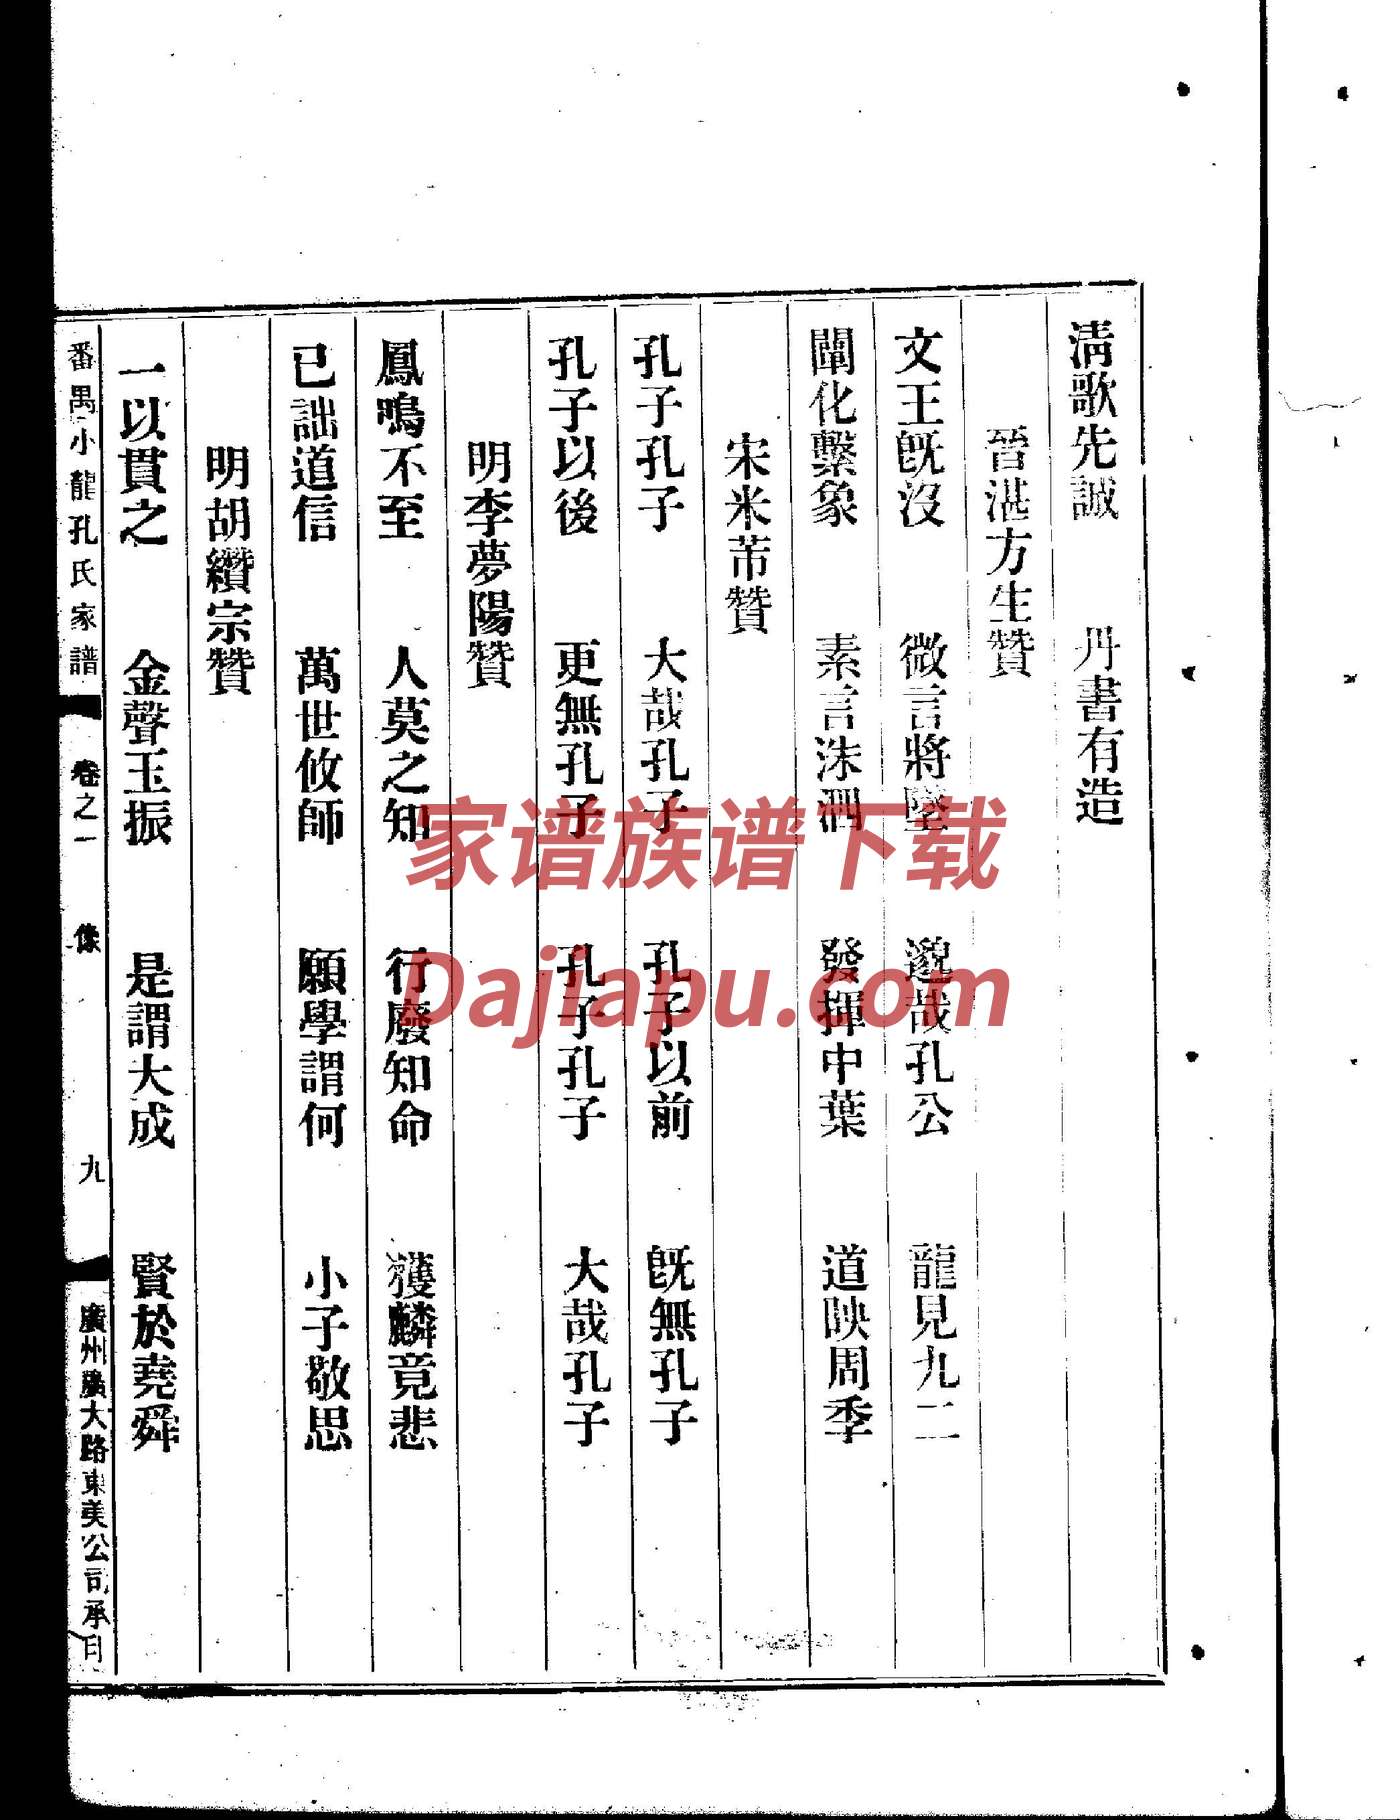 淸歌先誠　丹書有造
晉湛方生贊
文王旣沒　微言將墜　邈哉孔公　龍見九二
闡化繫象　素言洙泗　發揮中葉　道映周季
宋米芾贊
孔子孔子　大哉孔子　孔子以前　旣無孔子
孔子以後　更無孔子　孔子孔子　大哉孔子
明李夢陽贊
鳳鳴不至　人莫之知　行廢知命　獲麟竟悲
已詘道信　萬世攸師　願學謂何　小子敬思
明胡纘宗贊
一以貫之　金聲玉振　是謂大成　賢於堯舜
番禺小龍孔氏家譜　卷之一　像　九　廣州廣大路東美公司承印
家谱族谱下载
Dajiapu.com